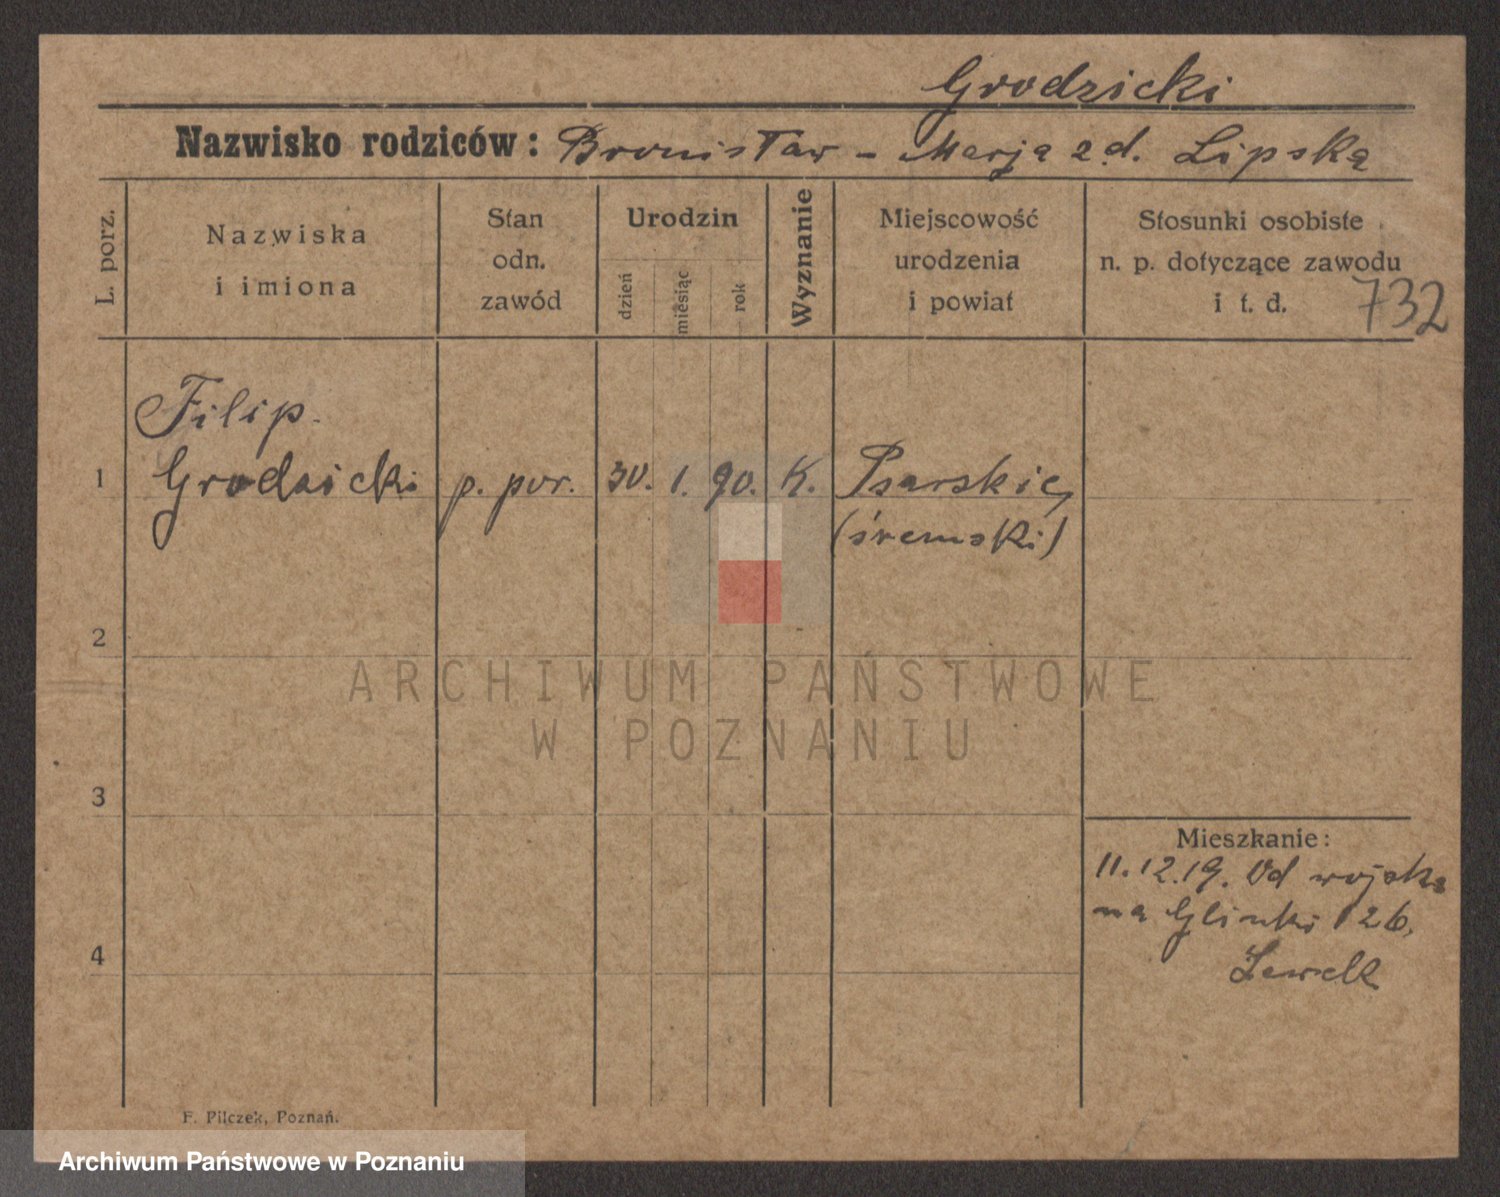 Grodzicki
Nazwisko rodziców: Bronisław – Marja z d. Lipska
L. porz.
Nazwiska
i imiona
Stan
odn.
zawód
Urodzin
dzień
miesiąc
rok
Wyznanie
Miejscowość
urodzenia
i powiat
Stosunki osobiste
n. p. dotyczące zawodu
i t. d.
732
Filip
1 Grodzicki p. por. 30. 1. 90. K. Psarskie,
(śremski)
2
ARCHIWUM PAŃSTWOWE
W POZNANIU
3
Mieszkanie:
11.12.19. Od wojska
na Glinki 26.
4
F. Pilczek, Poznań.
Archiwum Państwowe w Poznaniu